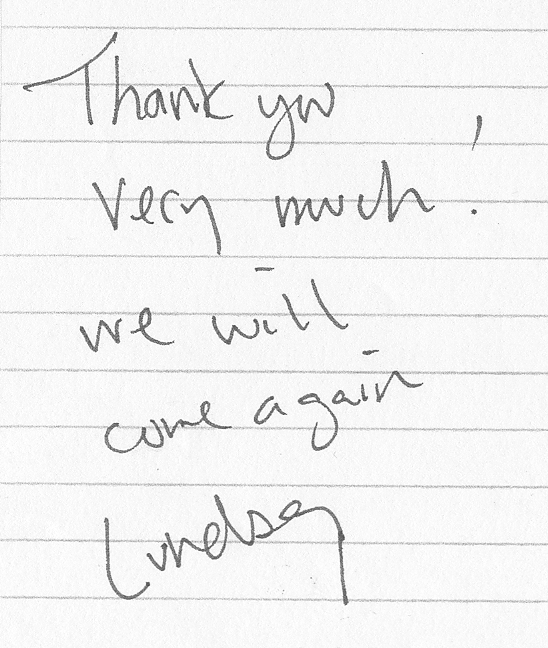 Thank you
very much!
we will
come again
Lindsay